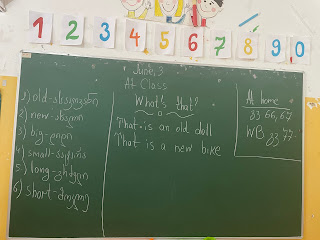 1 2 3 4 5 6 7 8 9 0
June, 3
At Class
What's that?
1) old - 
2) new - ახალი
3) big - დიდი
4) small - პატარა
5) long - გრძელი
6) short - მოკლე
That is an old doll
That is a new bike
At home
გვ 66, 67
WB გვ 77